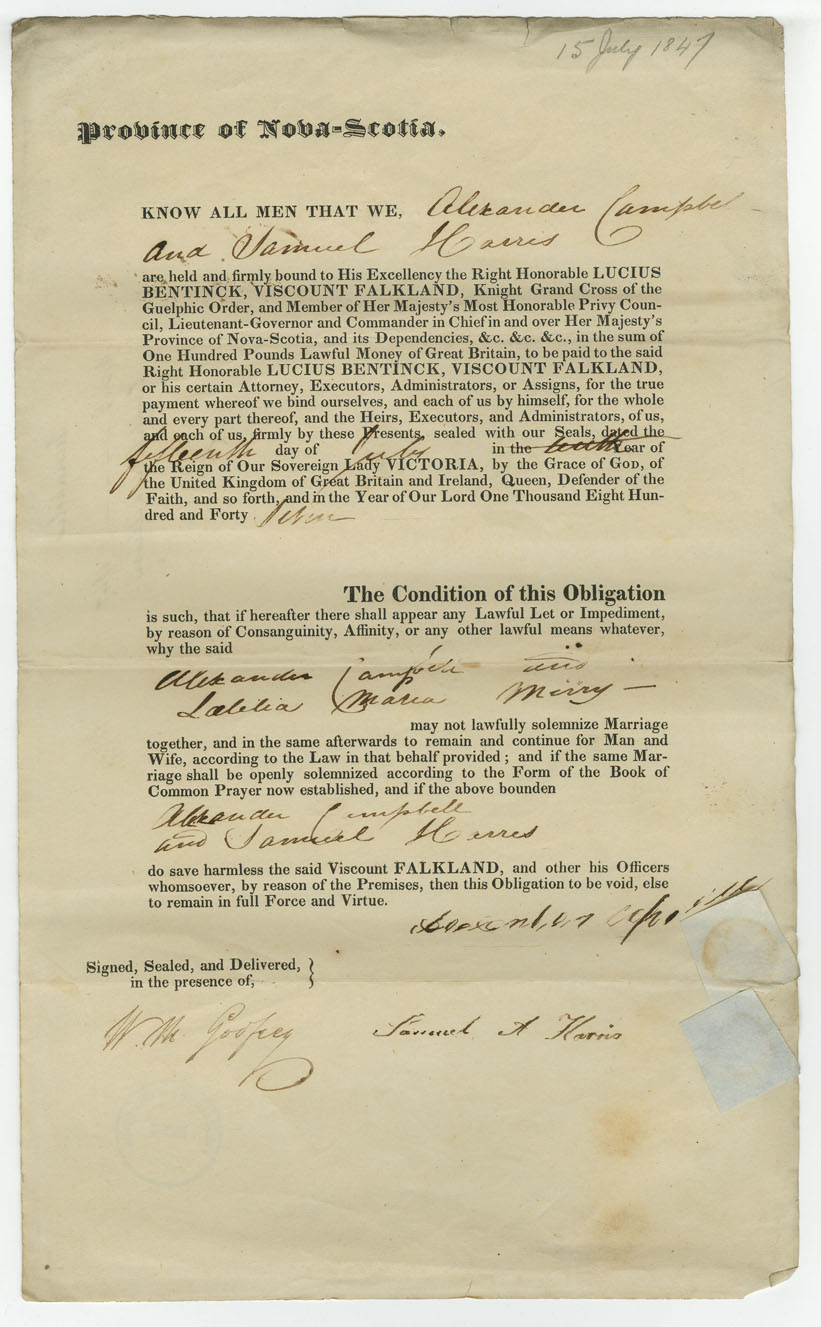 15 July 1847
Province of Nova-Scotia.
KNOW ALL MEN THAT WE, Alexander Campbel
and Samuel Harris
are held and firmly bound to His Excellency the Right Honorable LUCIUS
BENTINCK, VISCOUNT FALKLAND, Knight Grand Cross of the
Guelphic Order, and Member of Her Majesty's Most Honorable Privy Coun-
cil, Lieutenant-Governor and Commander in Chief in and over Her Majesty's
Province of Nova-Scotia, and its Dependencies, &c. &c. &c., in the sum of
One Hundred Pounds Lawful Money of Great Britain, to be paid to the said
Right Honorable LUCIUS BENTINCK, VISCOUNT FALKLAND,
or his certain Attorney, Executors, Administrators, or Assigns, for the true
payment whereof we bind ourselves, and each of us by himself, for the whole
and every part thereof, and the Heirs, Executors, and Administrators, of us,
and each of us, firmly by these Presents, sealed with our Seals, dated the
fifteenth day of July in the tenth Year of
the Reign of Our Sovereign Lady VICTORIA, by the Grace of GOD, of
the United Kingdom of Great Britain and Ireland, Queen, Defender of the
Faith, and so forth, and in the Year of Our Lord One Thousand Eight Hun-
dred and Forty Seven
The Condition of this Obligation
is such, that if hereafter there shall appear any Lawful Let or Impediment,
by reason of Consanguinity, Affinity, or any other lawful means whatever,
why the said
Alexander Campbell and
Lætitia Maria Mirry
may not lawfully solemnize Marriage
together, and in the same afterwards to remain and continue for Man and
Wife, according to the Law in that behalf provided; and if the same Mar-
riage shall be openly solemnized according to the Form of the Book of
Common Prayer now established, and if the above bounden
Alexander Campbell
and Samuel Harris
do save harmless the said Viscount FALKLAND, and other his Officers
whomsoever, by reason of the Premises, then this Obligation to be void, else
to remain in full Force and Virtue.
Signed, Sealed, and Delivered,
in the presence of,
W. M. Godfrey Samuel A Harris